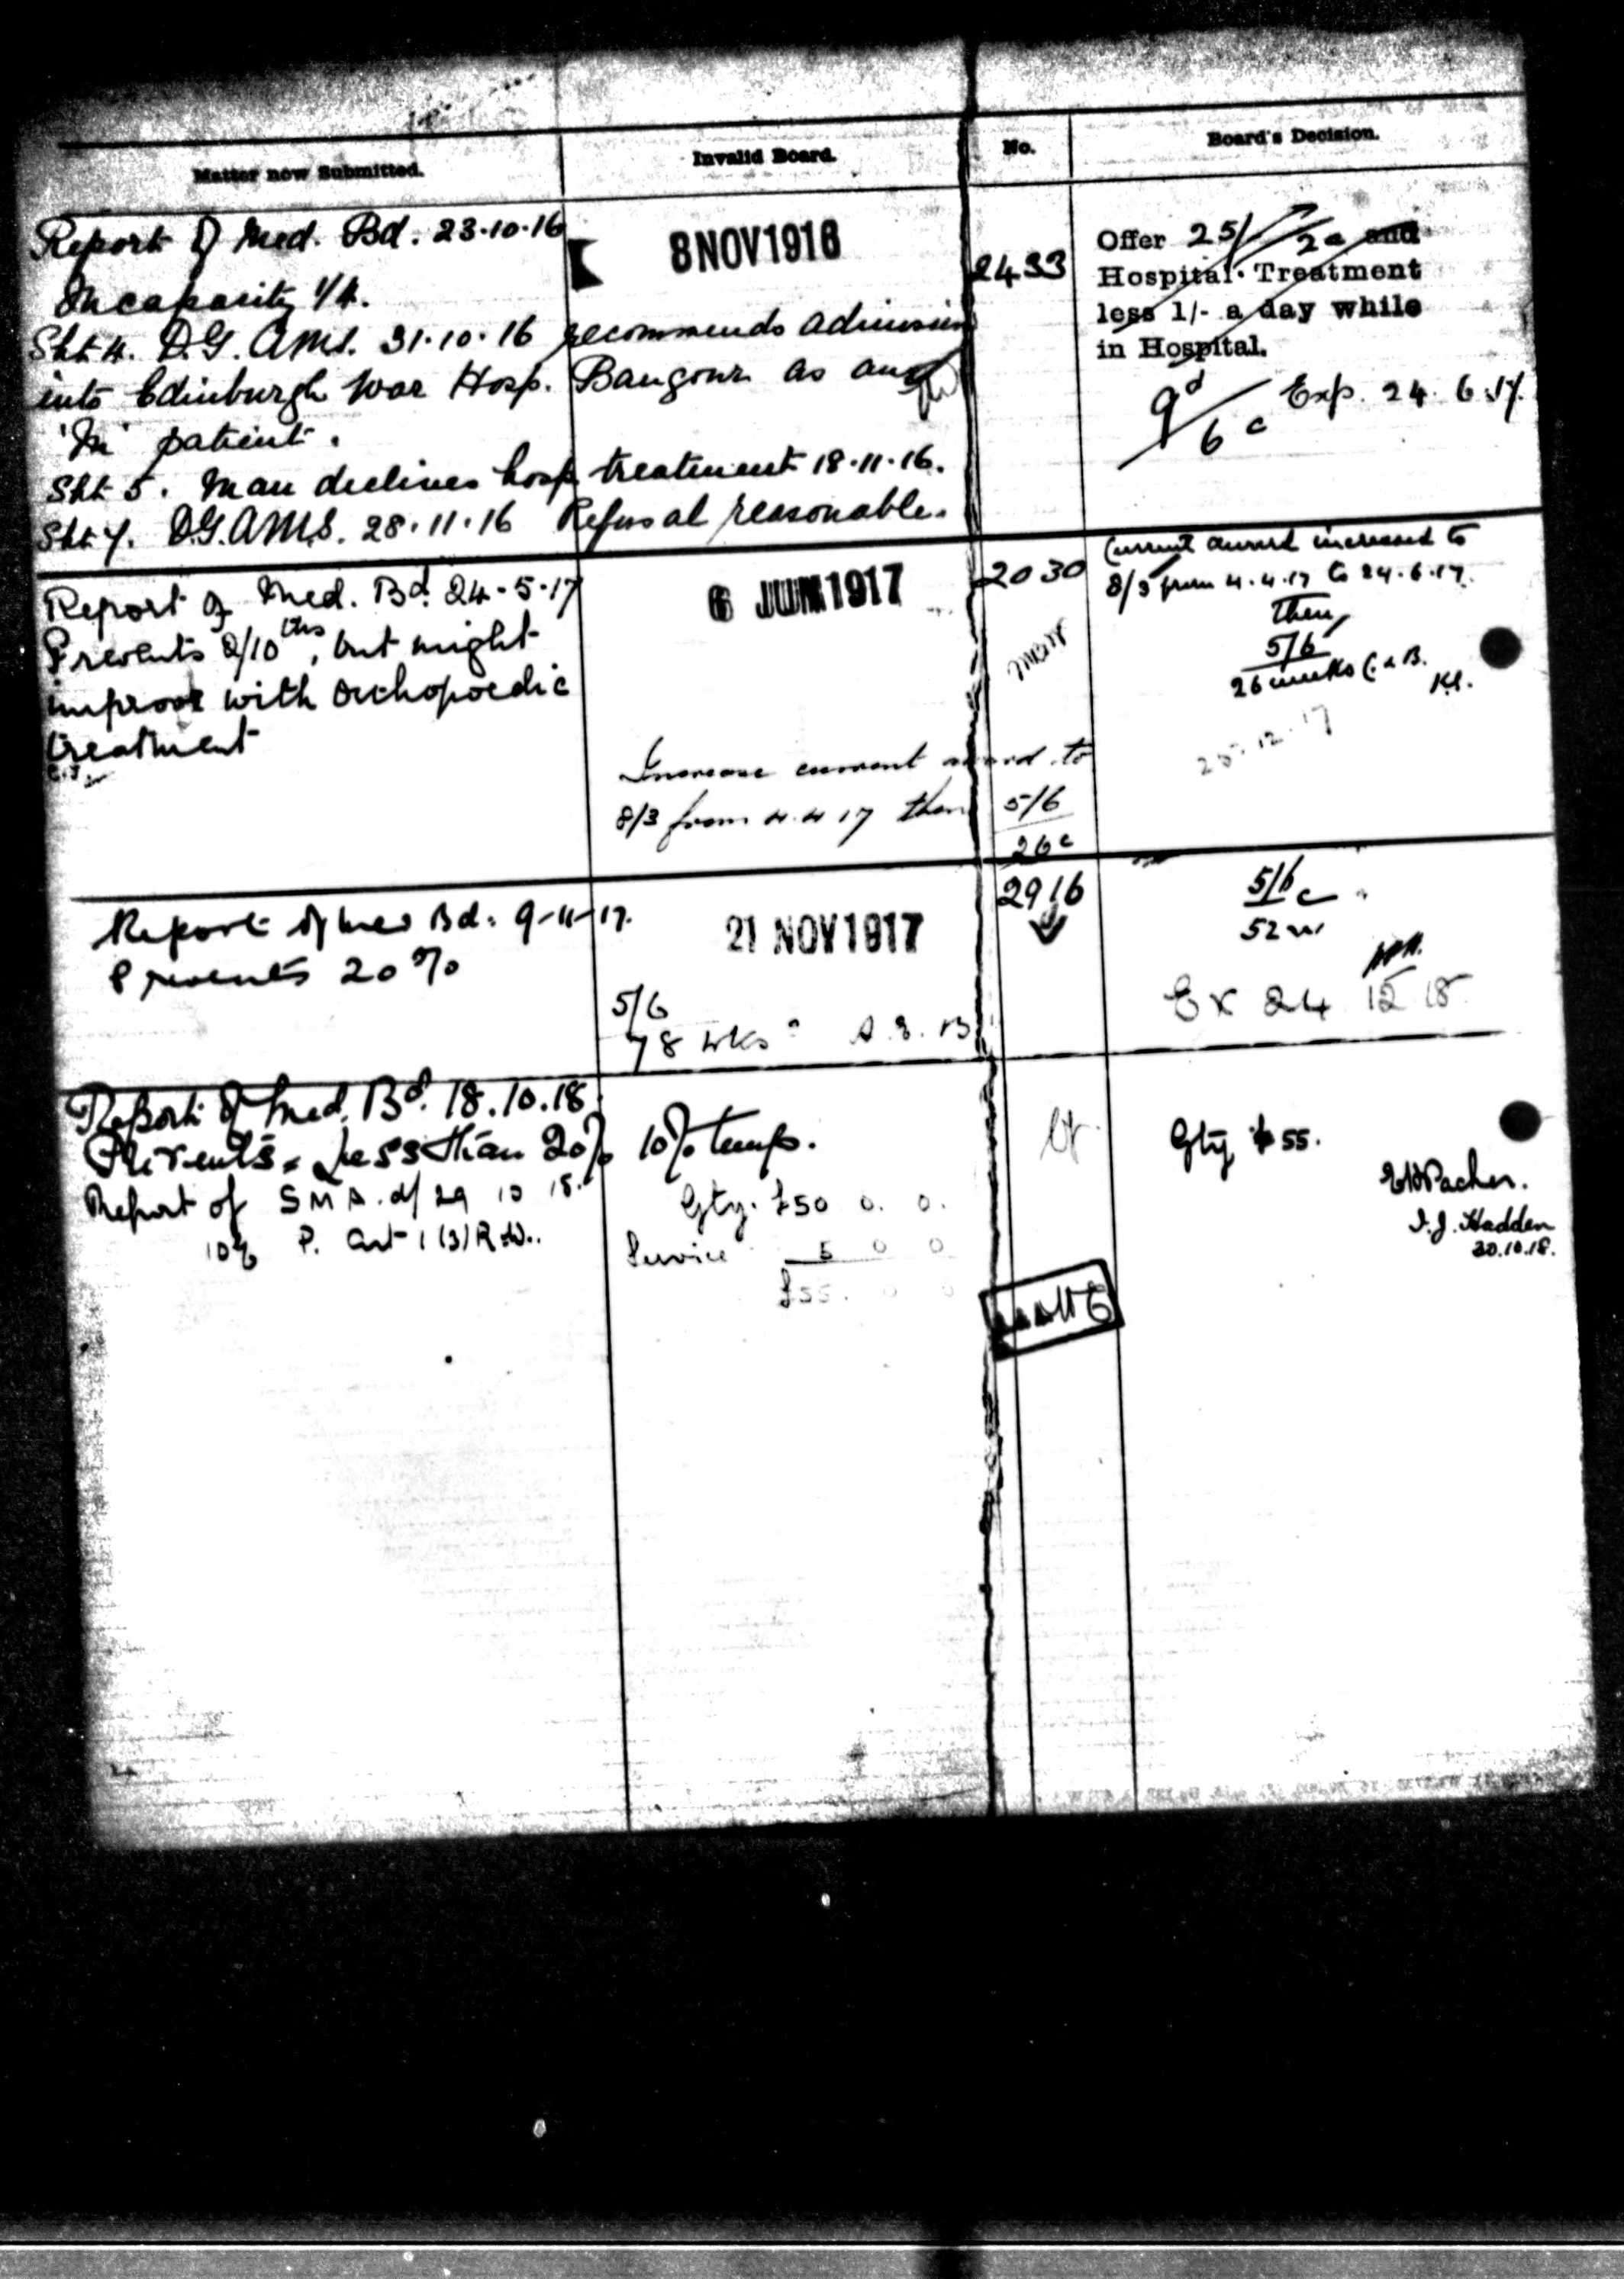 Matter now Submitted.
Invalid Board.
No.
Board's Decision.
Report of Med. Bd. 23.10.16
Incapacity 1/4.
Sht 4. D.G. A.M.S. 31.10.16 recommends admission
into Edinburgh War Hosp. Bangour as an
'In' patient.
Sht 5. Man declines hosp treatment 18.11.16.
Sht 7. D.G.A.M.S. 28.11.16 Refusal reasonable.
8 NOV 1916
2433
Offer 25/- 2a and
Hospital Treatment
less 1/- a day while
in Hospital.
9d
6 c Exp. 24.6.17.
Report of Med. Bd. 24-5-17
Prevents 2/10ths, but might
improve with orthopoedic
treatment
6 JUN 1917
Increase current award to
8/3 from 4.4.17 then 5/6
26 c
2030
Current award increased to
8/3 from 4.4.17 to 24.6.17.
then
5/6
26 weeks C. & B.
25.12.17
Report of Med Bd. 9-11-17.
Prevents 20%
21 NOV 1917
5/6
78 wks
2916
5/6 c
52 w
Ex 24 12 18
Report of Med. Bd. 18.10.18
Prevents. Less than 20%
Report of S M A. d/ 29 10 18.
10% P. Art 1 (3) R.W.
10% temp.
Gty. £50 0. 0.
Service 5 0 0
£55. 0 0
Gty £55.
I.J. Hadden
30.10.18.